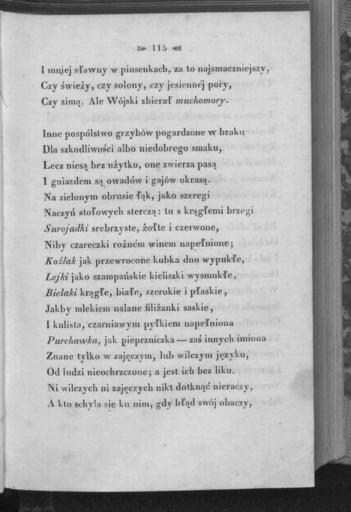 115
I mniej sławny w piosenkach, za to najsmaczniejszy,
Czy świeży, czy solony, czy jesiennéj pory,
Czy zimą. Ale Wójski zbierał muchomory.
Inne pospólstwo grzybów pogardzone w braku
Dla szkodliwości albo niedobrego smaku,
Lecz niesą bez użytku, one zwierza pasą
I gniazdem są owadów i gajów okrasą.
Na zielonym obrusie łąk, jako szeregi
Naczyń stołowych sterczą: tu s krągłemi brzegi
Surojadki srebrzyste, żołte i czerwone,
Niby czareczki rożném winem napełnione;
Koźlak jak przewrocone kubka dno wypukłe,
Lejki jako szampańskie kieliszki wysmukłe,
Bielaki krągłe, białe, szerokie i płaskie,
Jakby mlekiem nalane filiżanki saskie,
I kulista, czarniawym pyłkiem napełniona
Purchawka, jak pieprzniczka — zaś innych imiona
Znane tylko w zajęczym, lub wilczym języku,
Od ludzi nieochrzczone; a jest ich bez liku.
Ni wilczych ni zajęczych nikt dotknąć nieraczy,
A kto schyla się ku nim, gdy błąd swój obaczy,